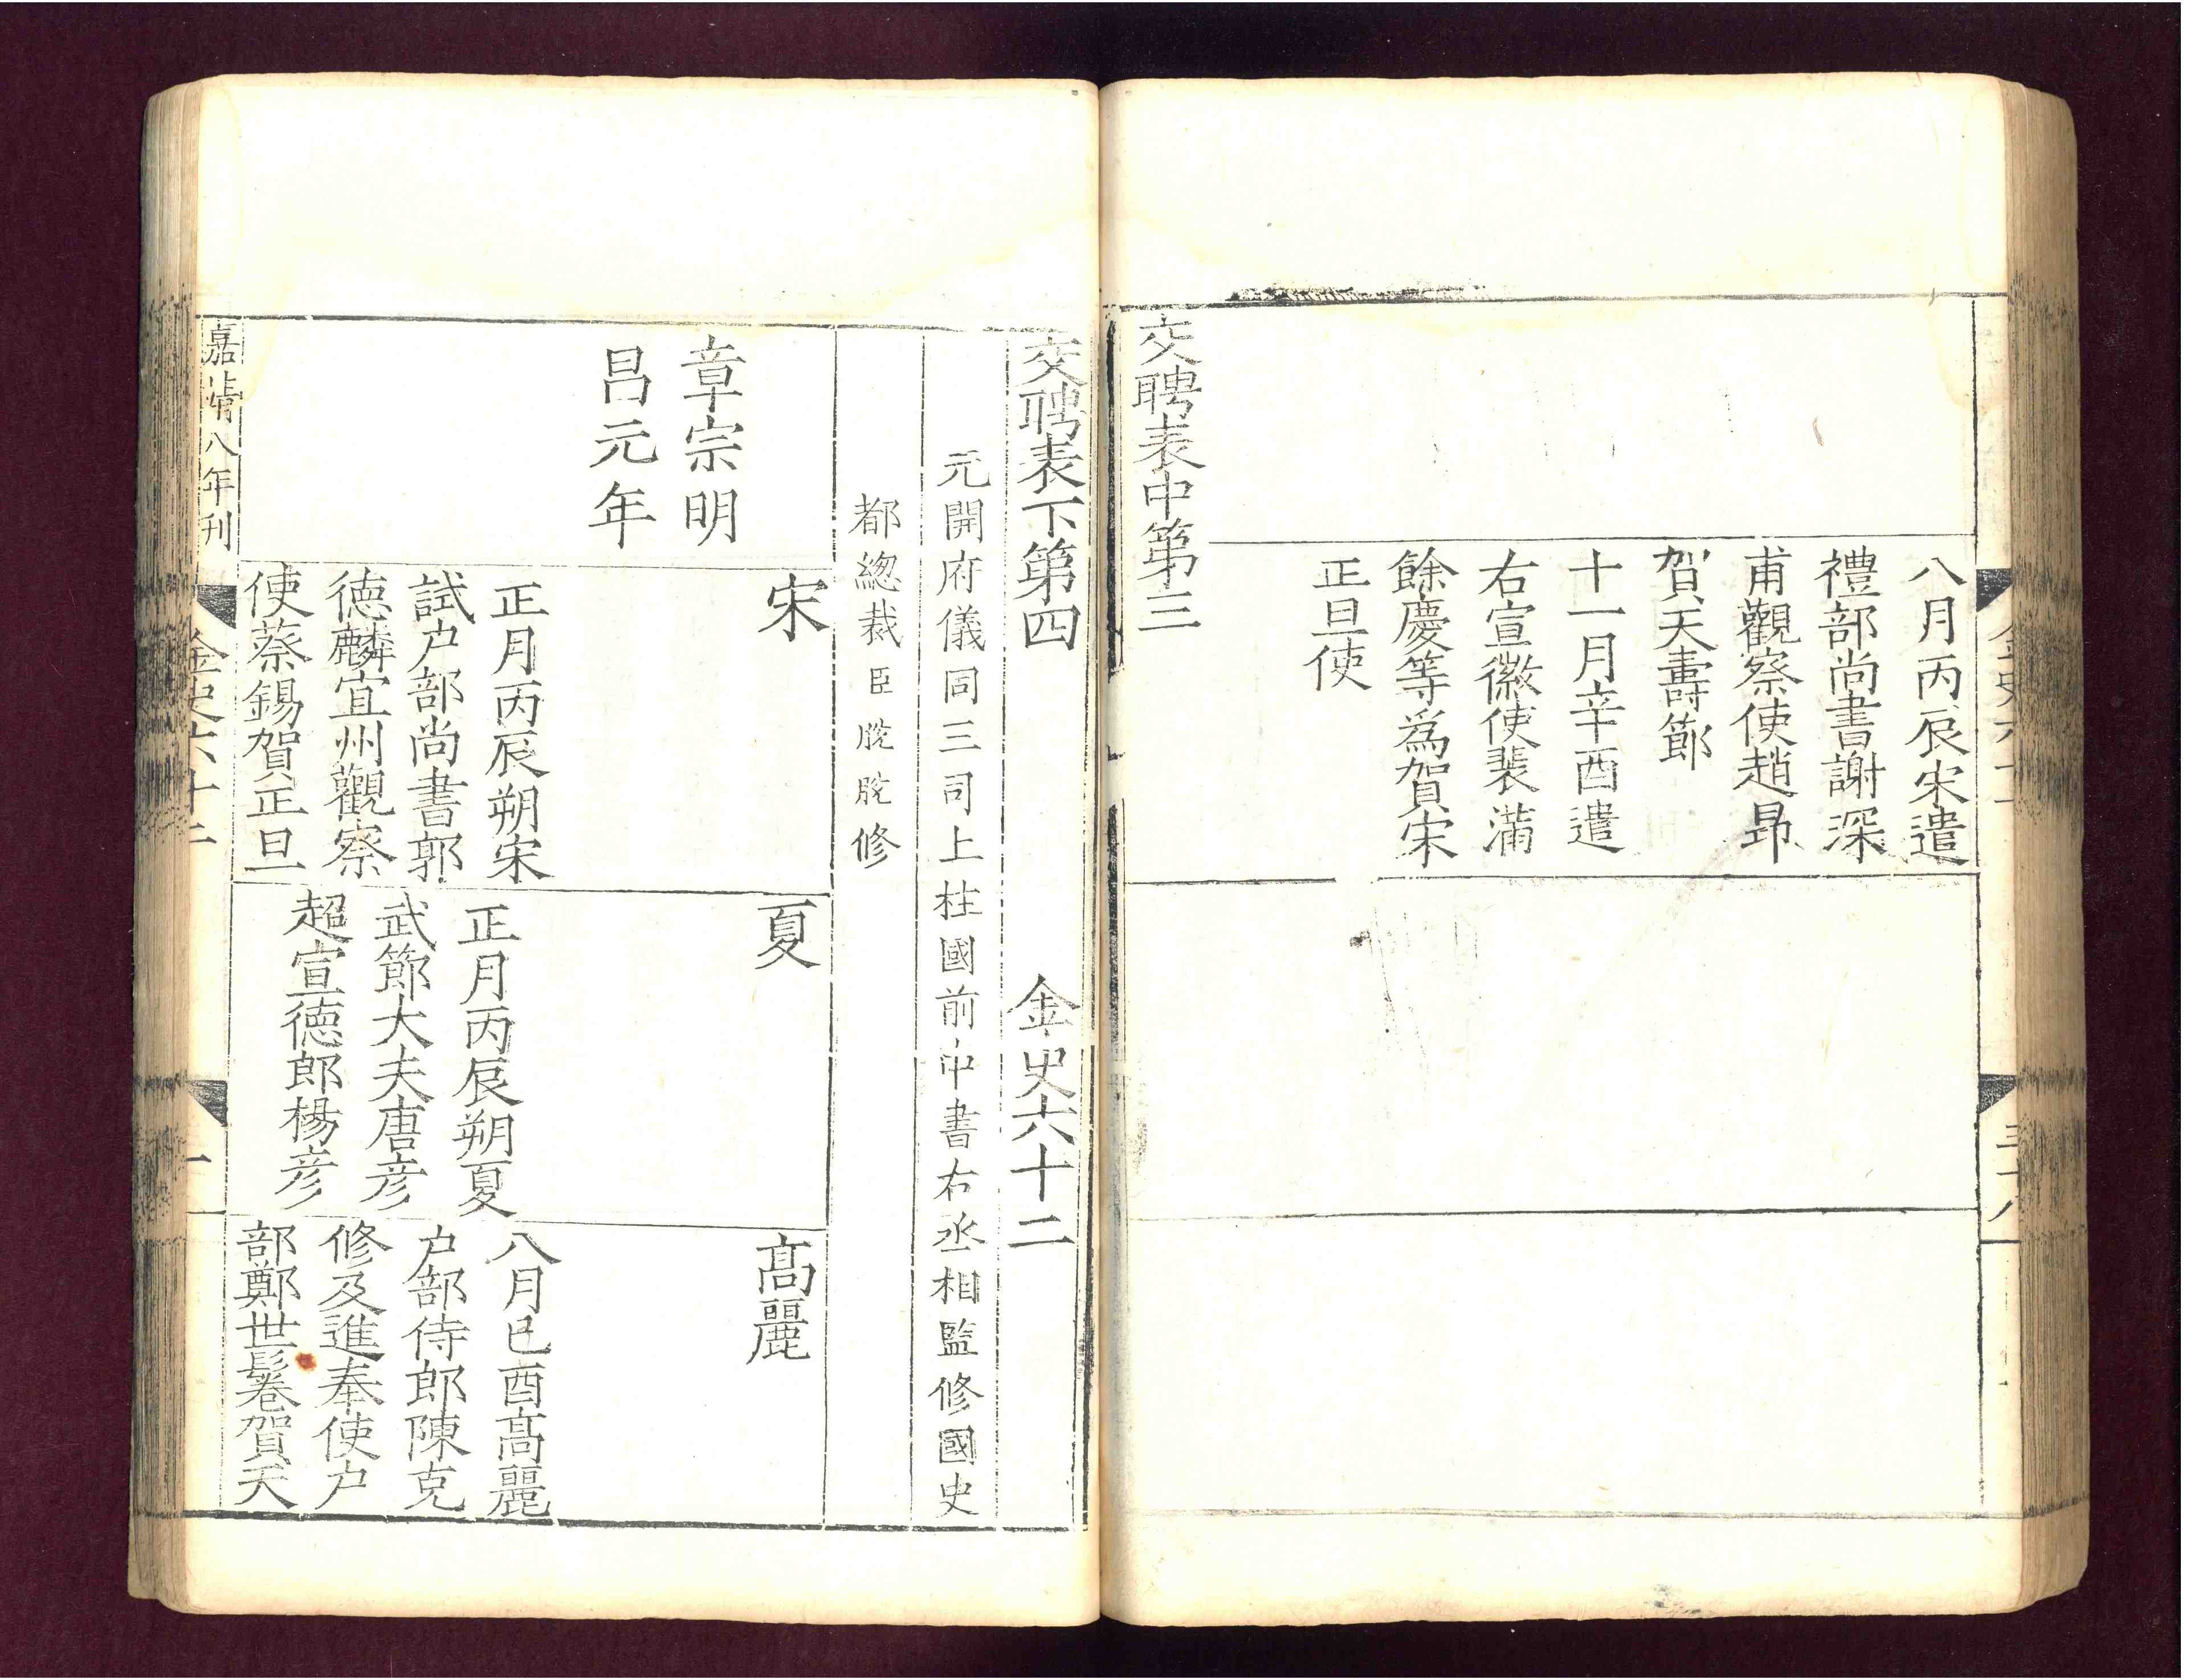 八月丙辰宋遣
禮部尚書謝深
甫觀察使趙昂
賀天壽節
十一月辛酉遣
右宣徽使裴滿
餘慶等為賀宋
正旦使
交聘表中第三
交聘表下第四　金史六十二
元開府儀同三司上柱國前中書右丞相監修國史
都緫裁臣脫脫修
章宗明
昌元年
宋
正月丙辰朔宋
試户部尚書郭
德麟宜州觀察
使蔡錫賀正旦
夏
正月丙辰朔夏
武節大夫唐彦
超宣德郎楊彦
髙麗
八月已酉髙麗
户部侍郎陳克
修及進奉使户
部鄭世髷賀天
嘉靖八年刊
金史六十二
一